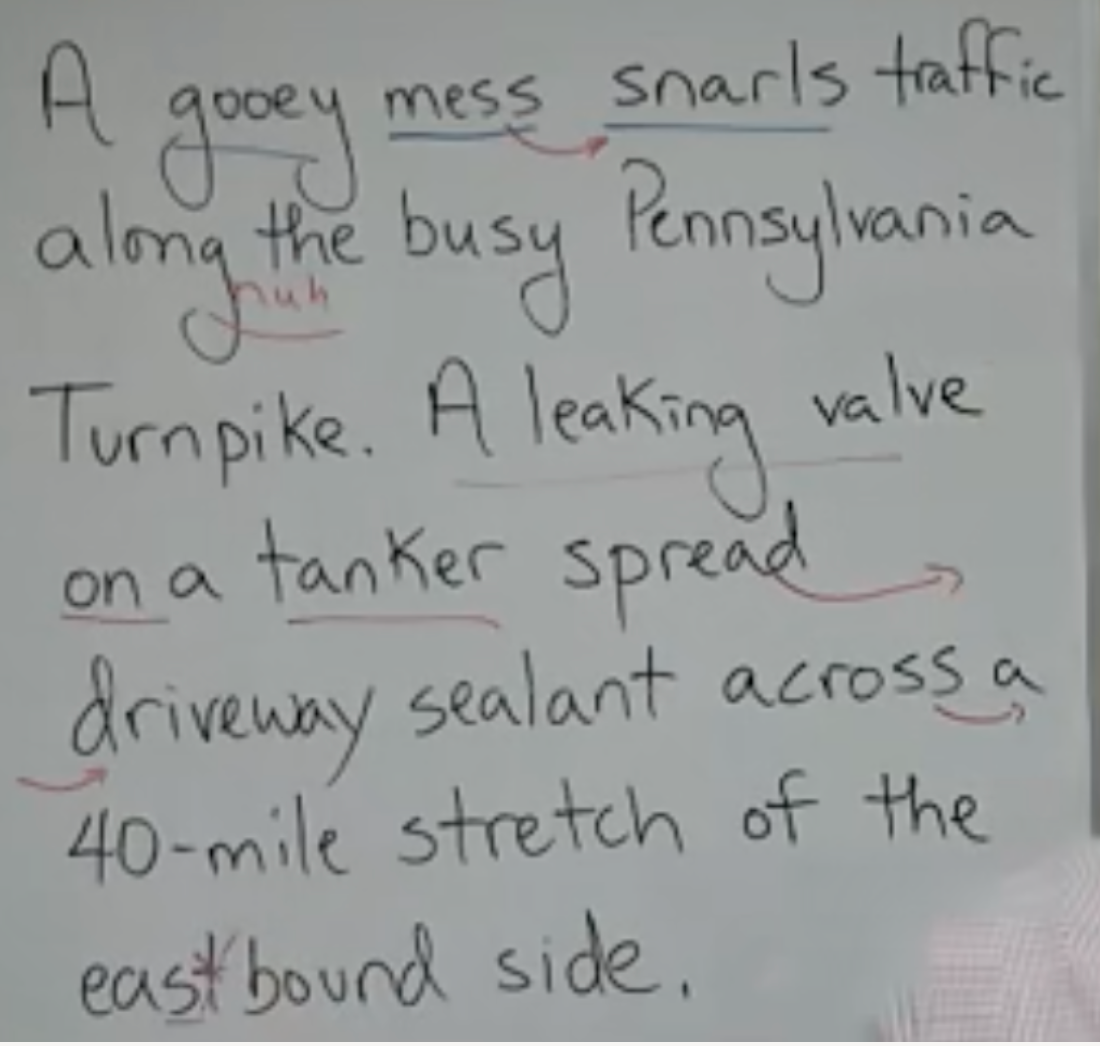 A gooey mess snarls traffic
along the busy Pennsylvania
nuh
Turnpike. A leaking valve
on a tanker spread
driveway sealant across a
40-mile stretch of the
eastbound side.